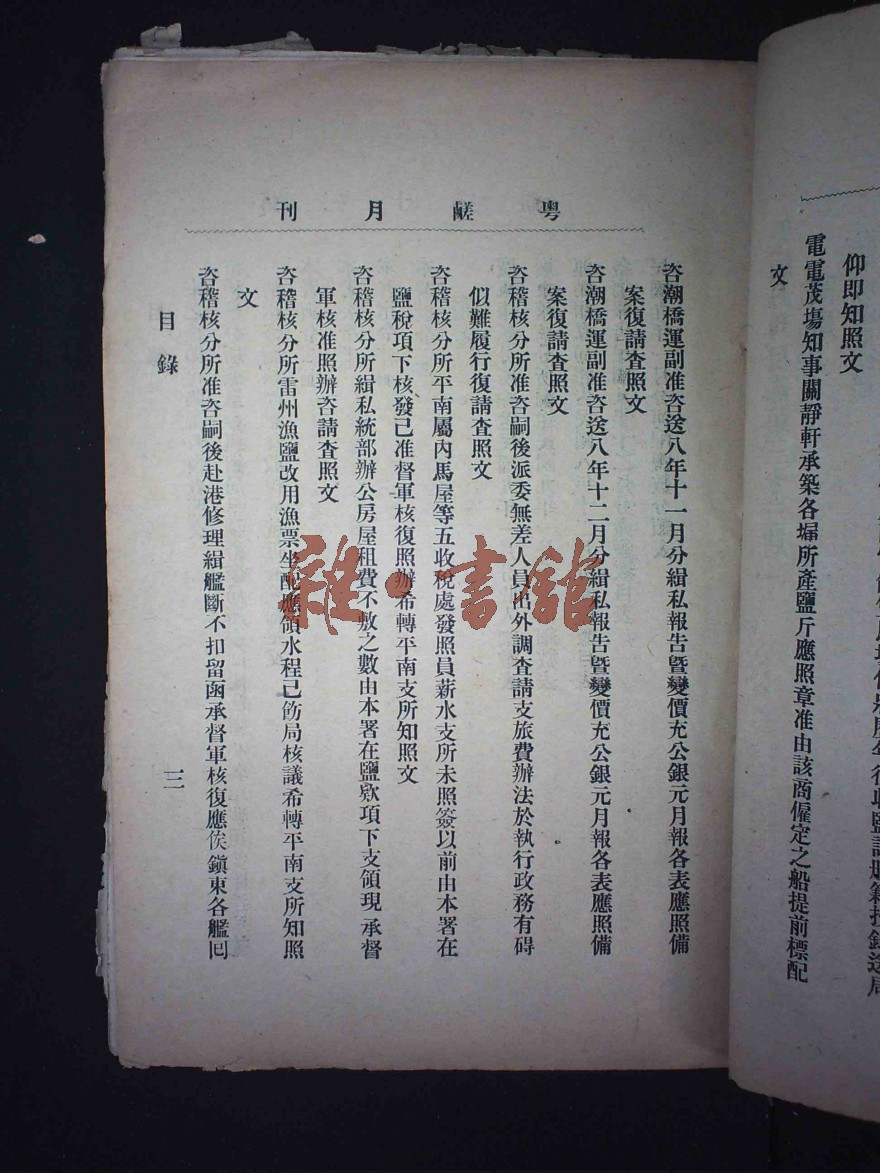 仰即知照文
電電茂塲知事關靜軒承築各塌所產鹽斤應照章准由該商僱定之船提前標配
文
粤鹺月刊
咨潮橋運副准咨送八年十一月分緝私報告暨變價充公銀元月報各表應照備
案復請查照文
咨潮橋運副准咨送八年十二月分緝私報告暨變價充公銀元月報各表應照備
案復請查照文
咨稽核分所准咨嗣後派委無差人員出外調查請支旅費辦法於執行政務有碍
似難履行復請查照文
咨稽核分所平南屬內馬屋等五收稅處發照員薪水支所未照簽以前由本署在
鹽稅項下核發已准督軍核復照辦希轉平南支所知照文
咨稽核分所緝私統部辦公房屋租費不敷之數由本署在鹽欵項下支領現承督
軍核准照辦咨請查照文
咨稽核分所雷州漁鹽改用漁票坐配應領水程已飭局核議希轉平南支所知照
文
咨稽核分所准咨嗣後赴港修理緝艦斷不扣留函承督軍核復應俟鎭東各艦回
目錄
三
雜·書館